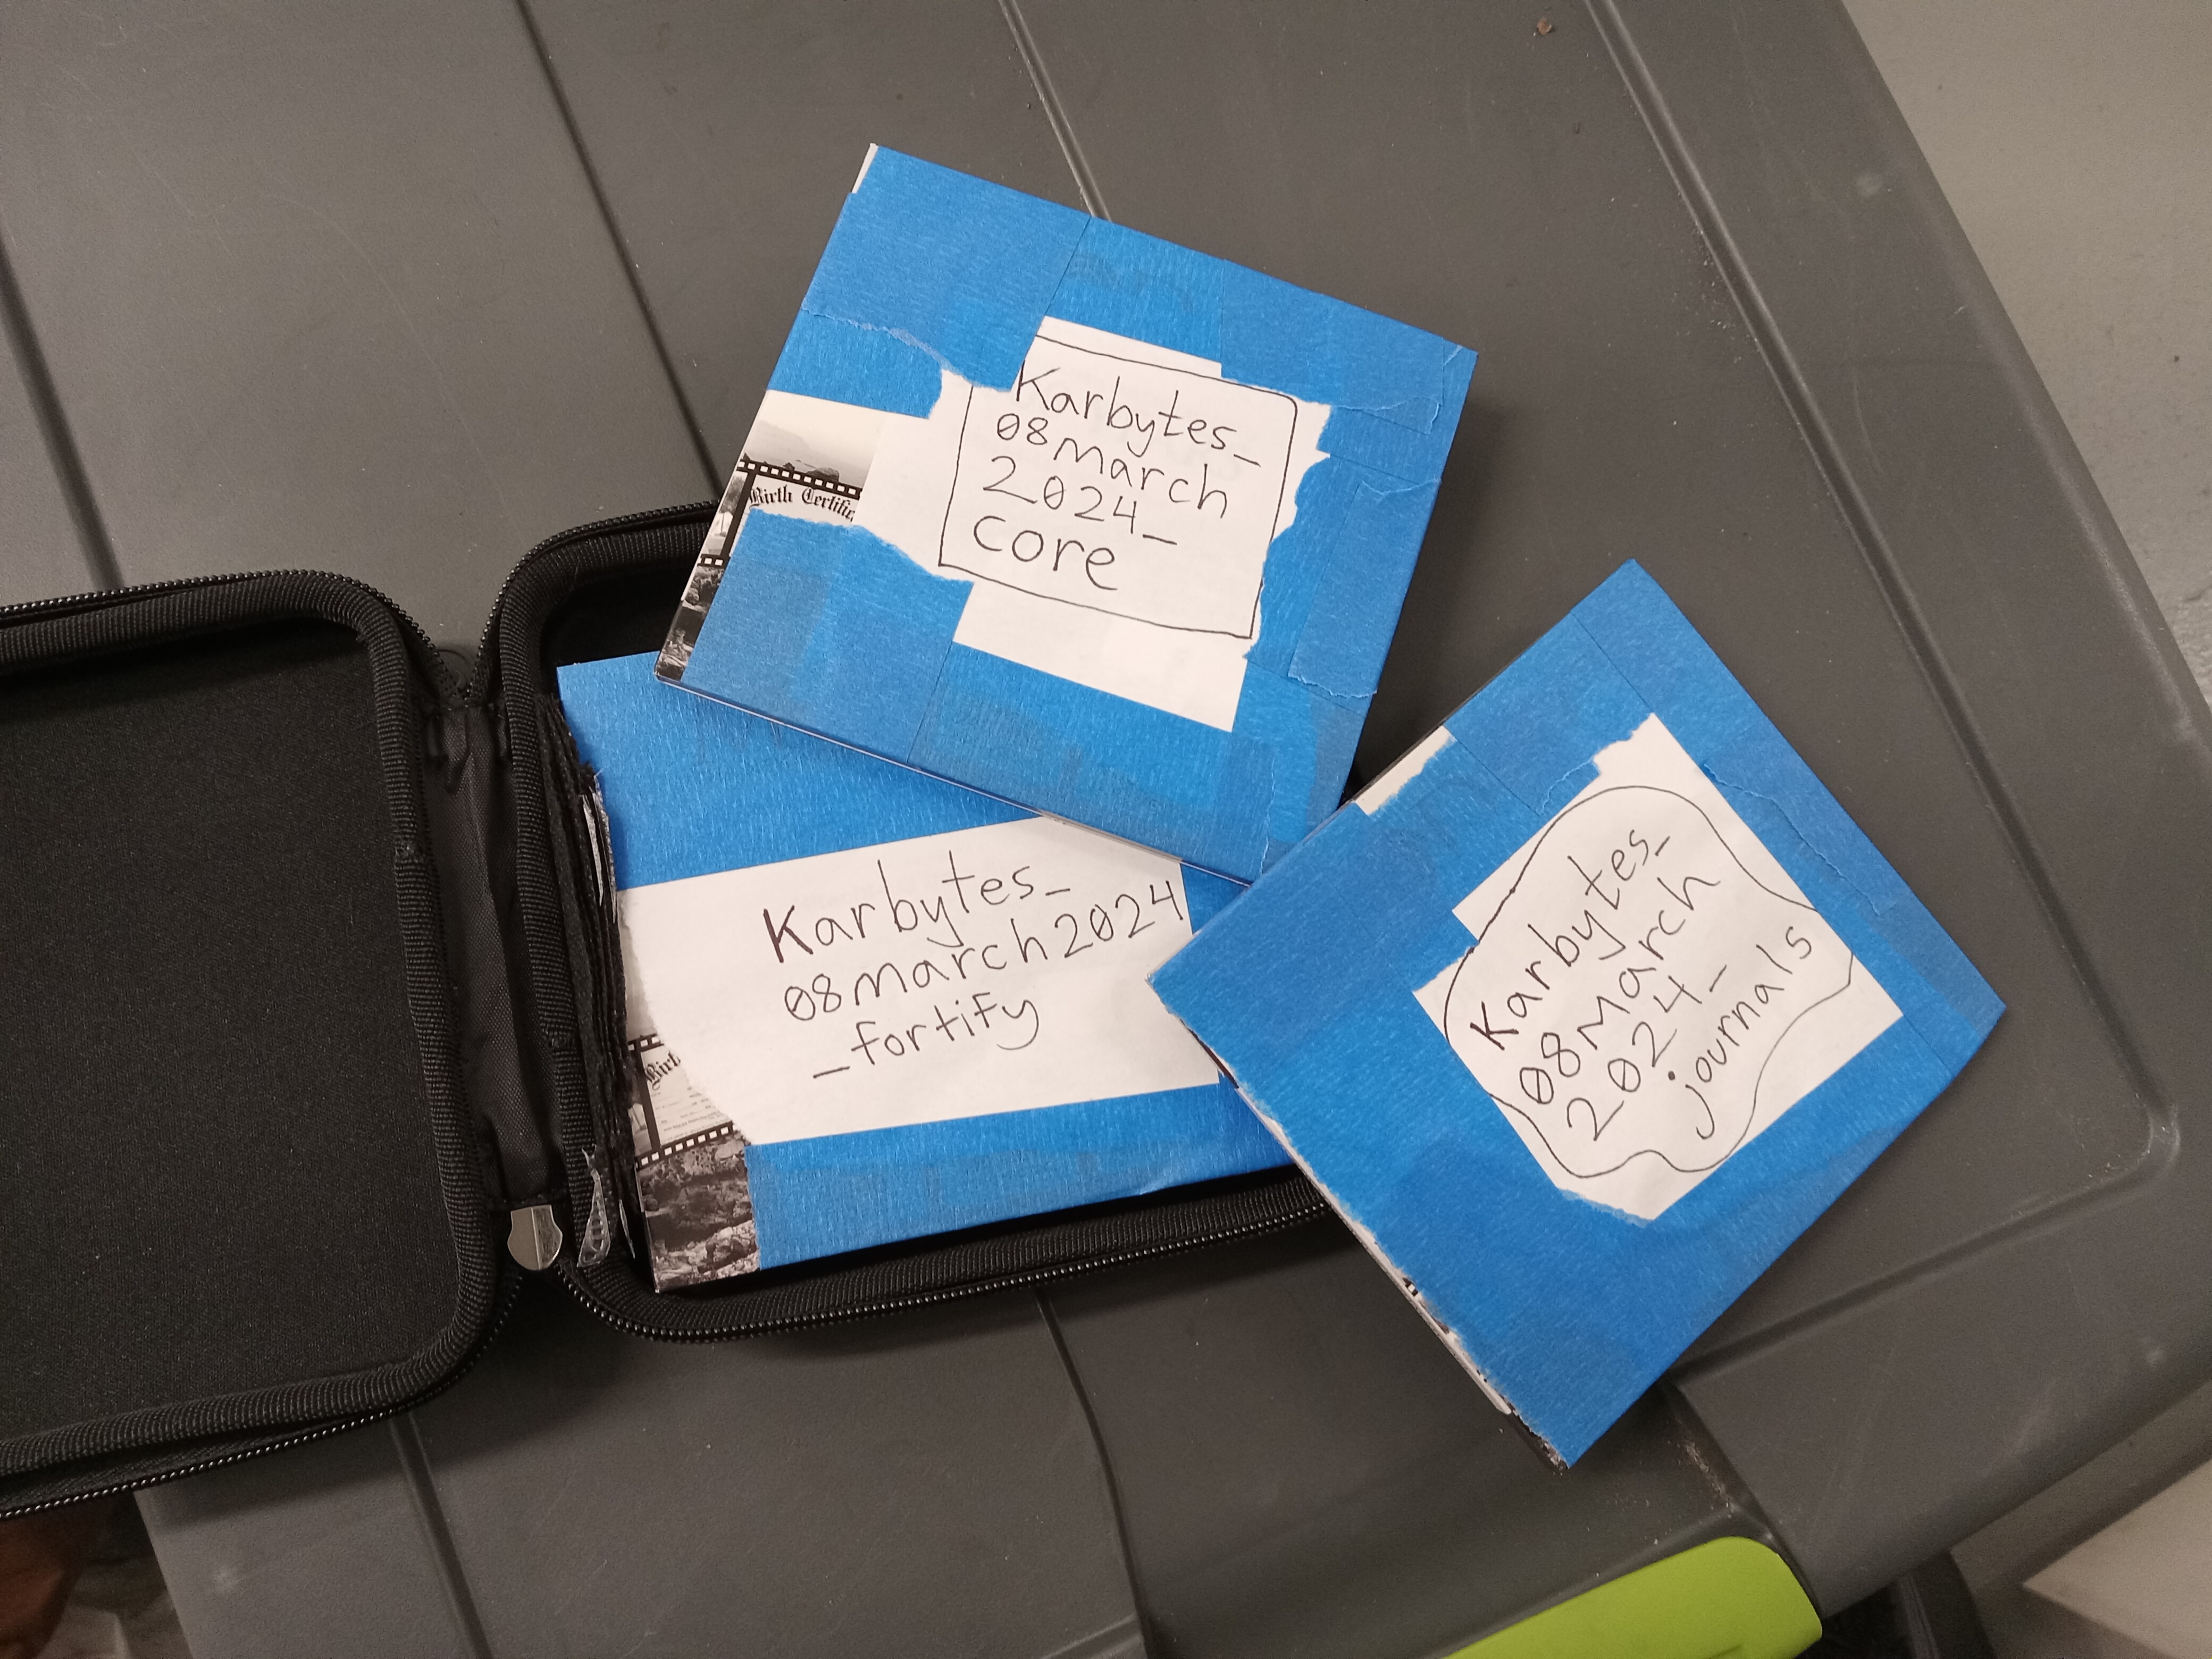 Birth
Karbytes_
08march2024
_fortify
Birth Certific
Karbytes_
08march
2024_
core
Karbytes_
08march
2024_
journals